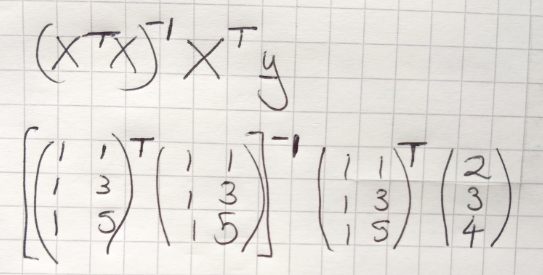 (XᵀX)⁻¹Xᵀy
[(1 1; 1 3; 1 5)ᵀ (1 1; 1 3; 1 5)]⁻¹ (1 1; 1 3; 1 5)ᵀ (2; 3; 4)